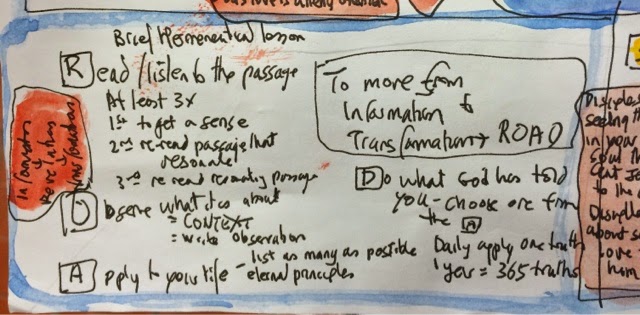 Brief Hermeneutical lesson
R ead / listen to the passage
At least 3x
1st to get a sense
2nd re-read passage that
resonate
3rd re read resonating passage
O bserve what it is about
= CONTEXT
= write observation
A pply to your life - list as many as possible
eternal principles
To move from
Information to
Transformation → ROAD
D o what God has told
you - choose one from
the A
Daily apply one truth
1 year = 365 truths
Information
↓
Revelation
↓
Disciples
seeing th
in your
soul th
to the
about s
Love
him